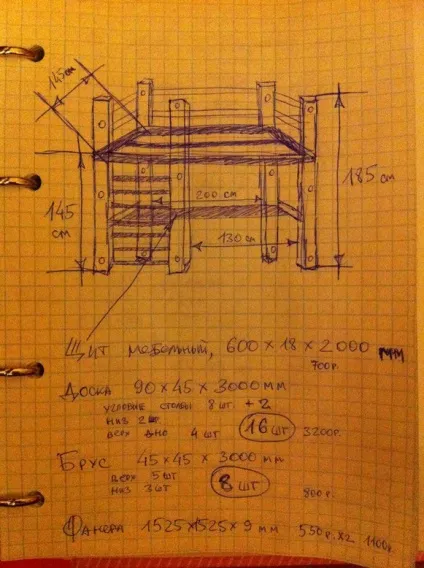 145 см
200 см
185 см
145
см
130 см
Щит мебельный, 600 × 18 × 2000 мм
700р.
Доска 90 × 45 × 3000 мм
угловые столбы 8 шт. + 2
низ 2 шт.
верх дно 4 шт 16 шт 3200р.
Брус 45 × 45 × 3000 мм
верх 5 шт
низ 3 шт 8 шт 800р.
Фанера 1525×1525 × 9 мм 550р. x2 1100р.